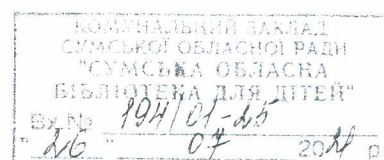 КОМУНАЛЬНИЙ ЗАКЛАД
СУМСЬКОЇ ОБЛАСНОЇ РАДИ
"СУМСЬКА ОБЛАСНА
БІБЛІОТЕКА ДЛЯ ДІТЕЙ"
Вх.№ 194/01-25
"26" 07 2021 р